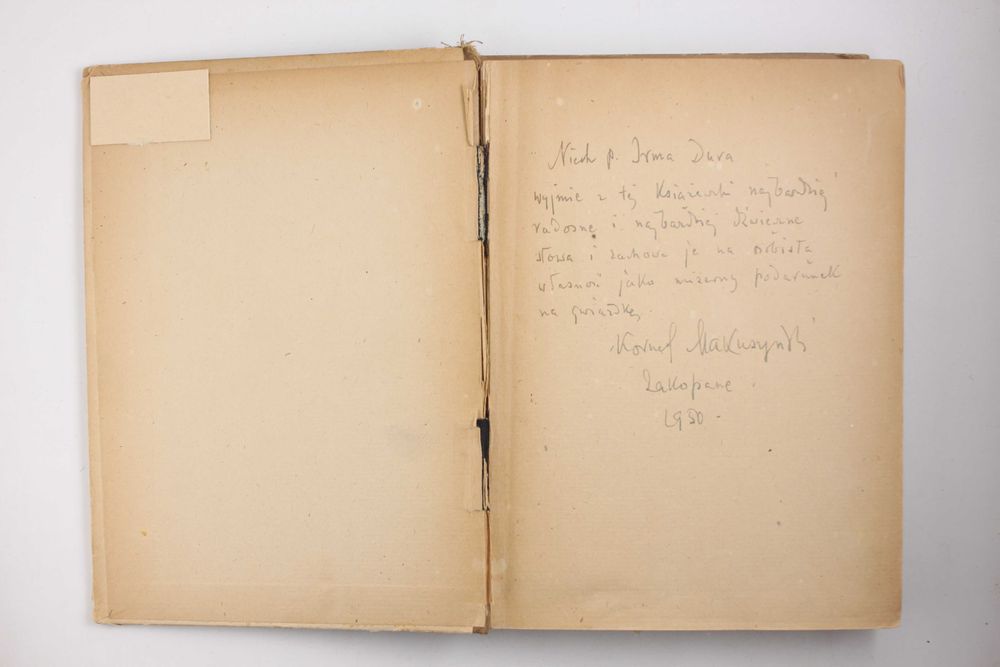 Niech p. Irma Dura
wyjmie z tej książeczki najbardziej
radosne i najbardziej dźwięczne
słowa i zachowa je na osobistą
własność jako mizerny podarunek
na gwiazdkę.
Kornel Makuszyński
Zakopane
1950